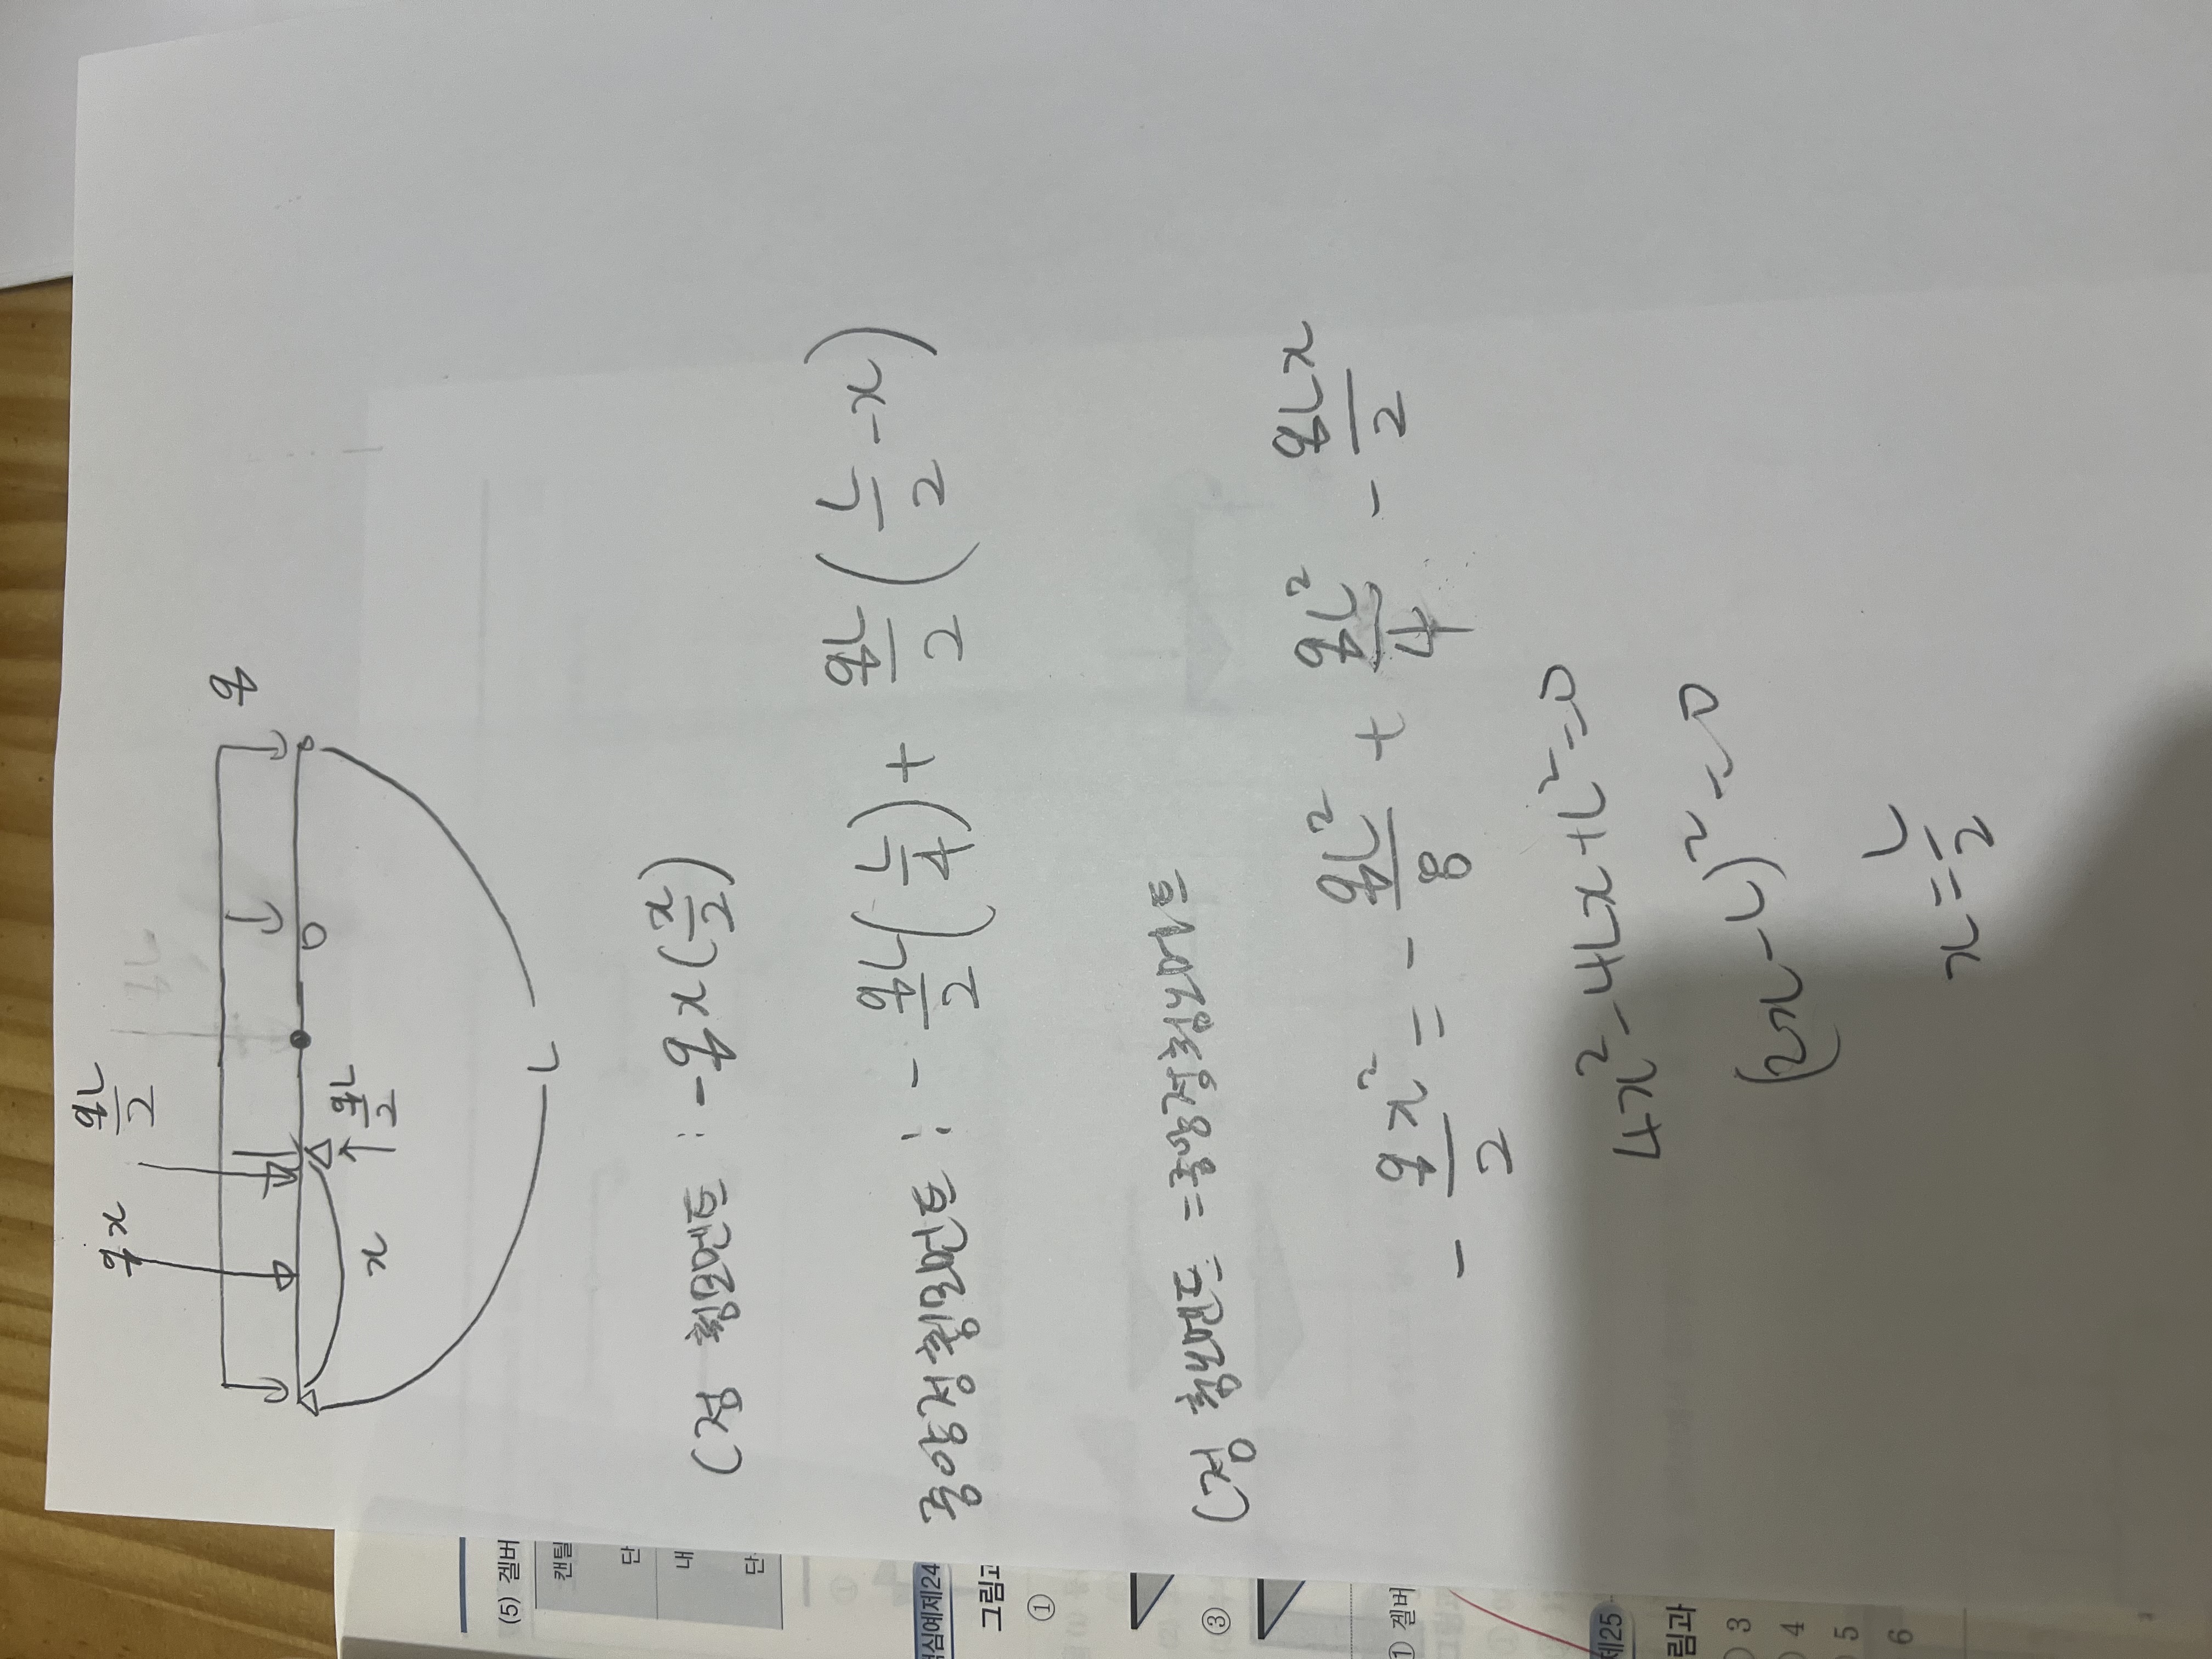 qx
qL/2
q
qL/2
x
L
C점 휨모멘트 : -qx(x/2)
중앙점휨모멘트 : -qL/2(L/4) + qL/2(L/2 -x)
C점 휨모멘트 = 중앙점휨모멘트
-qx²/2 = -qL²/8 + qL²/4 - qLx/2
4x²-4Lx+L²=0
(2x-L)²=0
x=L/2
(5) 겔버
캔틸
단
내
단
심예제24
그림고
①
③
① 겔버
제25
림과
3
4
5
6